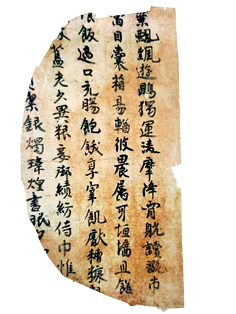 葉飄颻遊鵾獨運凌摩絳霄躭讀翫市
寓目囊箱易輶攸畏屬耳垣墻具饍
飯適口充腸飽飫享宰飢猒糟糠
舊老少異粮妾御績紡侍巾帷
潔銀燭煒煌晝眠